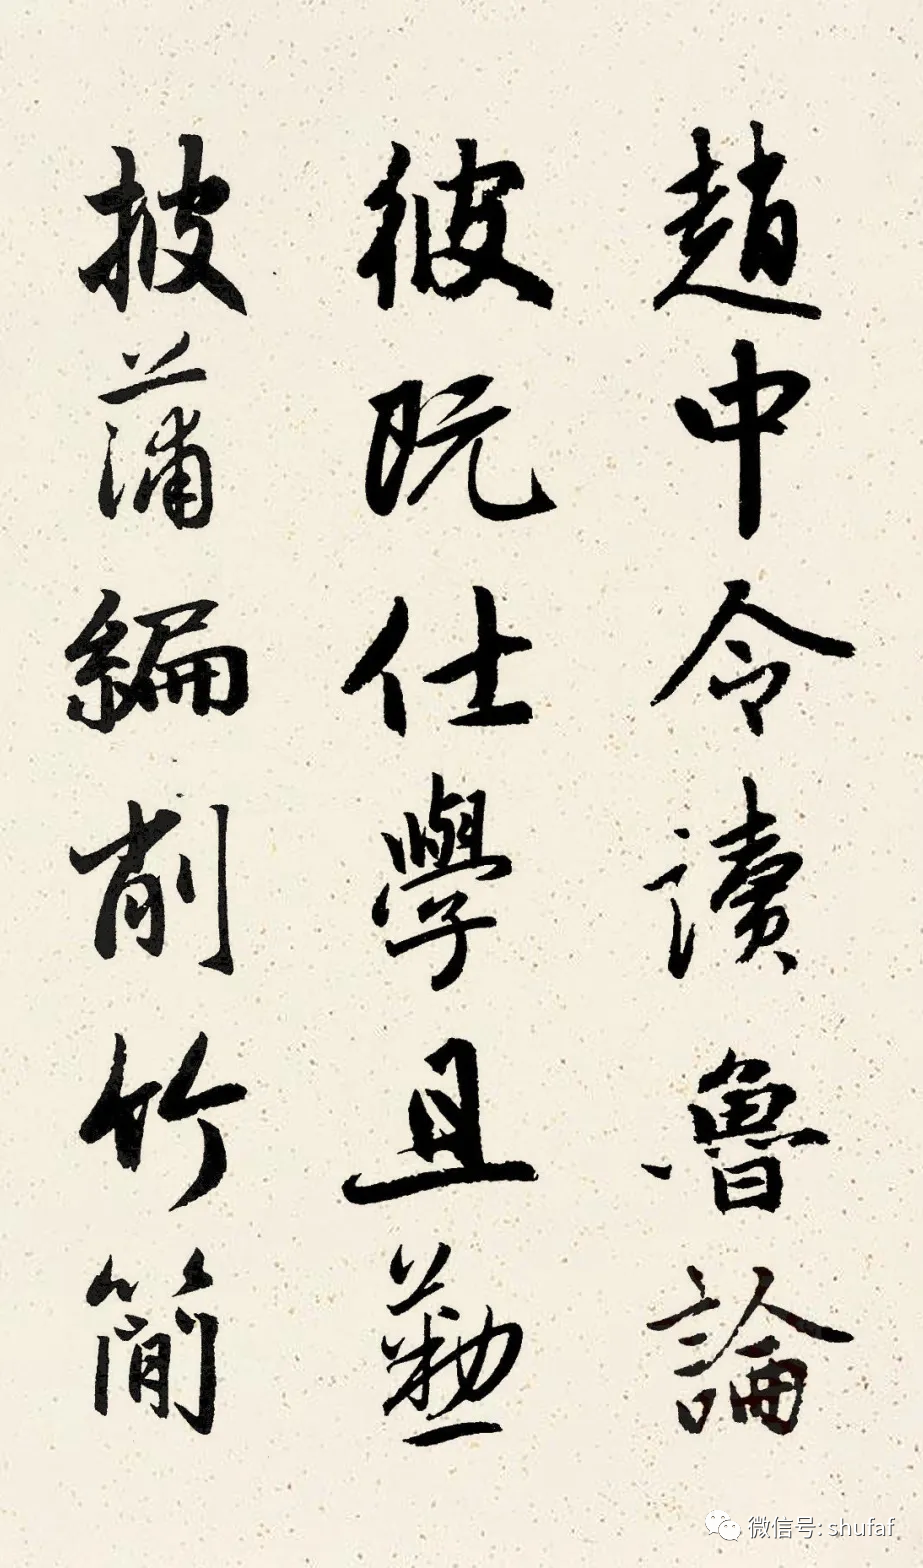 趙中令讀魯論
彼既仕學且勤
披蒲編削竹簡
微信号: shufaf